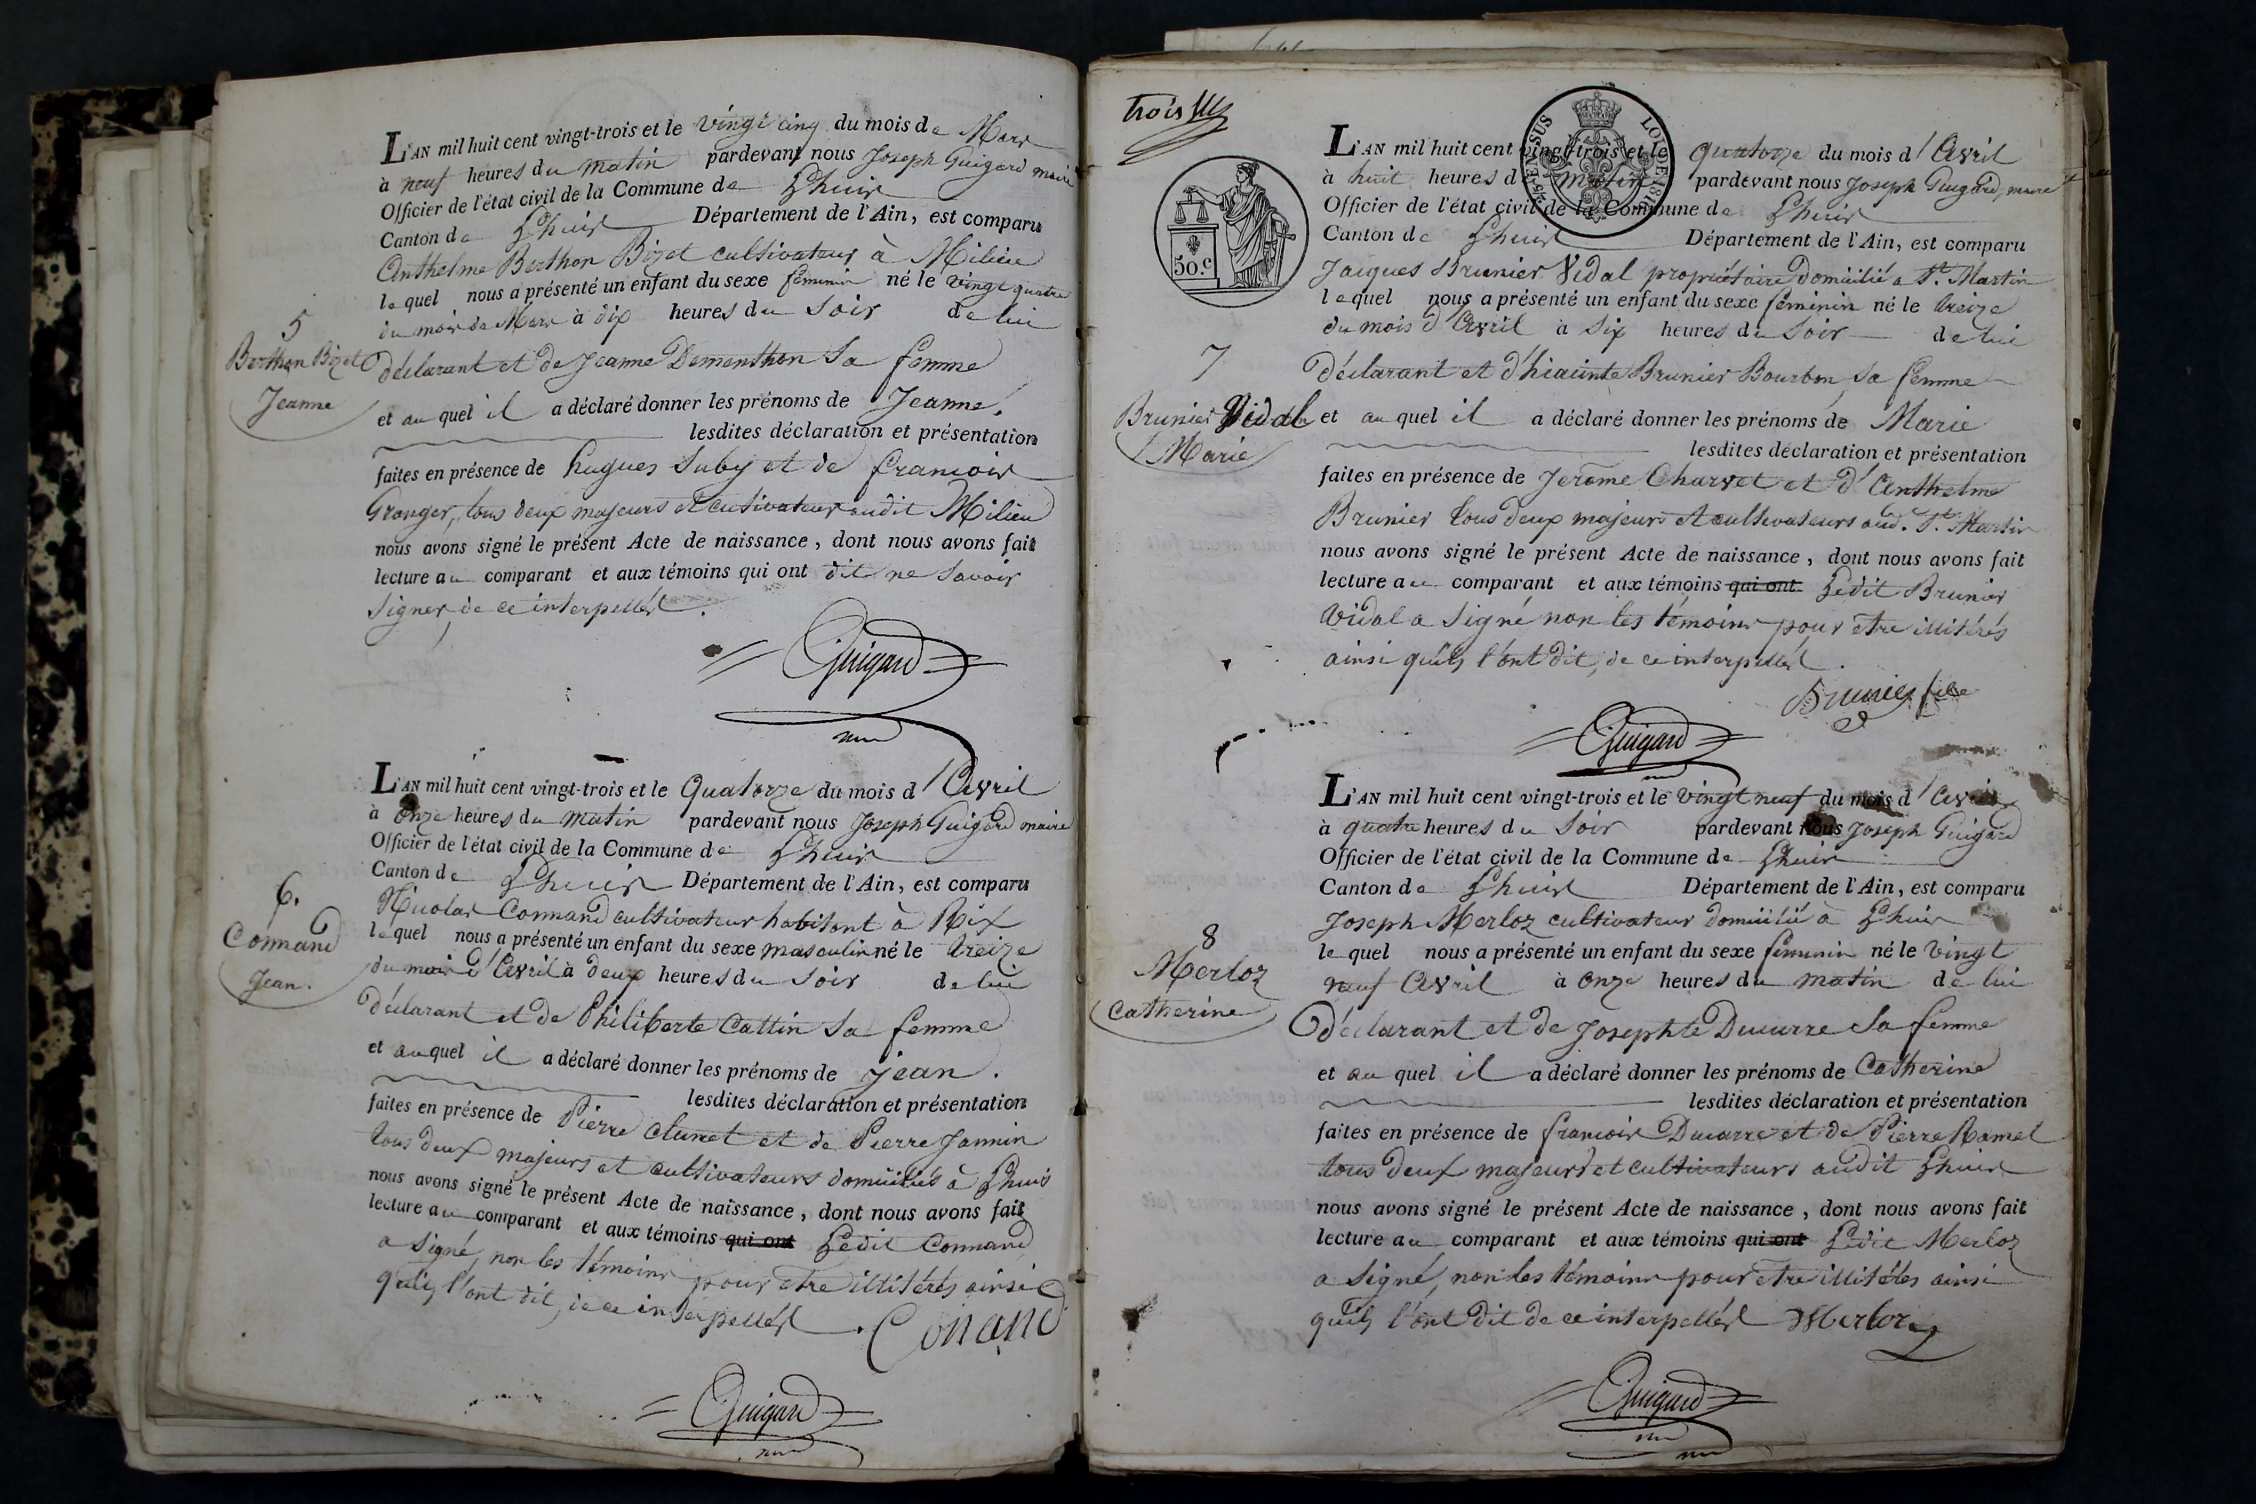 L'AN mil huit cent vingt-trois et le vingt cinq du mois de Mars
à neuf heures du matin pardevant nous Joseph Guigard maire
Officier de l'état civil de la Commune de Lhuis
Canton de Lhuis Département de l'Ain, est comparu
Anthelme Berthon Bizet cultivateur à Milieu
lequel nous a présenté un enfant du sexe féminin né le vingt quatre
du mois de Mars à dix heures du Soir de lui
5
Berthon Bizet
Jeanne
déclarant et de Jeanne Dementhon Sa femme
et au quel il a déclaré donner les prénoms de Jeanne.
lesdites déclaration et présentation
faites en présence de hugues Suby et de francois
Granger, tous deux majeurs et cutivateurs audit Milieu
nous avons signé le présent Acte de naissance, dont nous avons fait
lecture au comparant et aux témoins qui ont dit ne Savoir
Signer, de ce interpellés.
Guigard
L'AN mil huit cent vingt-trois et le Quatorze du mois d'Avril
à onze heures du matin pardevant nous Joseph Guigard maire
Officier de l'état civil de la Commune de Lhuis
Canton de Lhuis Département de l'Ain, est comparu
6.
Connand
Jean.
Nicolas Connand cultivateur habitant à Rix
lequel nous a présenté un enfant du sexe masculin né le treize
du mois d'Avril à deux heures du Soir de lui
déclarant et de Philiberte Cattin Sa femme
et au quel il a déclaré donner les prénoms de Jean.
lesdites déclaration et présentation
faites en présence de Pierre et de Pierre Jannin
tous deux majeurs et cultivateurs domiciliés à Lhuis
nous avons signé le présent Acte de naissance, dont nous avons fait
lecture au comparant et aux témoins qui ont Ledit Connand
a Signé, non les témoins pour etre illitérés ainsi
qu'ils l'ont dit, de ce interpellés.
Conand
Guigard
trois
ENSUS LOI DE 1816
50.c
L'AN mil huit cent vingt-trois et le quatorze du mois d'Avril
à huit heures du matin pardevant nous Joseph Guigard, maire
Officier de l'état civil de la Commune de Lhuis
Canton de Lhuis Département de l'Ain, est comparu
Jacques Brunier Vidal propriétaire domicilié a St. Martin
lequel nous a présenté un enfant du sexe féminin né le treize
du mois d'Avril à Six heures du Soir de lui
7
Brunier Vidal
Marie
déclarant et d'hiacinte Brunier Bourbon, Sa femme
et au quel il a déclaré donner les prénoms de Marie
lesdites déclaration et présentation
faites en présence de Jerome Charvet et d'Anthelme
Brunier tous deux majeurs et cultivateurs aud. St. Martin
nous avons signé le présent Acte de naissance, dont nous avons fait
lecture au comparant et aux témoins qui ont Ledit Brunier
Vidal a Signé non les témoins pour etre illitérés
ainsi qu'ils l'ont dit, de ce interpellés.
Brunier
Guigard
L'AN mil huit cent vingt-trois et le vingt neuf du mois d'Avril
à quatre heures du Soir pardevant nous Joseph Guigard
Officier de l'état civil de la Commune de Lhuis
Canton de Lhuis Département de l'Ain, est comparu
8
Merloz
Catherine
Joseph Merloz cultivateur domicilié à Lhuis
lequel nous a présenté un enfant du sexe féminin né le vingt
neuf Avril à onze heures du matin de lui
déclarant et de Josephte Ducarre Sa femme
et au quel il a déclaré donner les prénoms de Catherine
lesdites déclaration et présentation
faites en présence de francois Ducarre et de Pierre Ramel
tous deux majeurs et cultivateurs audit Lhuis
nous avons signé le présent Acte de naissance, dont nous avons fait
lecture au comparant et aux témoins qui ont Ledit Merloz
a Signé, non les témoins pour etre illitérés ainsi
qu'ils l'ont dit de ce interpellés
Merloz
Guigard